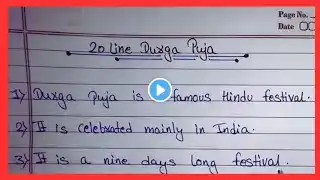 Page No.
Date
20 line Durga Puja
1) Durga Puja is famous Hindu festival.
2) It is celebrated mainly in India.
3) It is a nine days long festival.